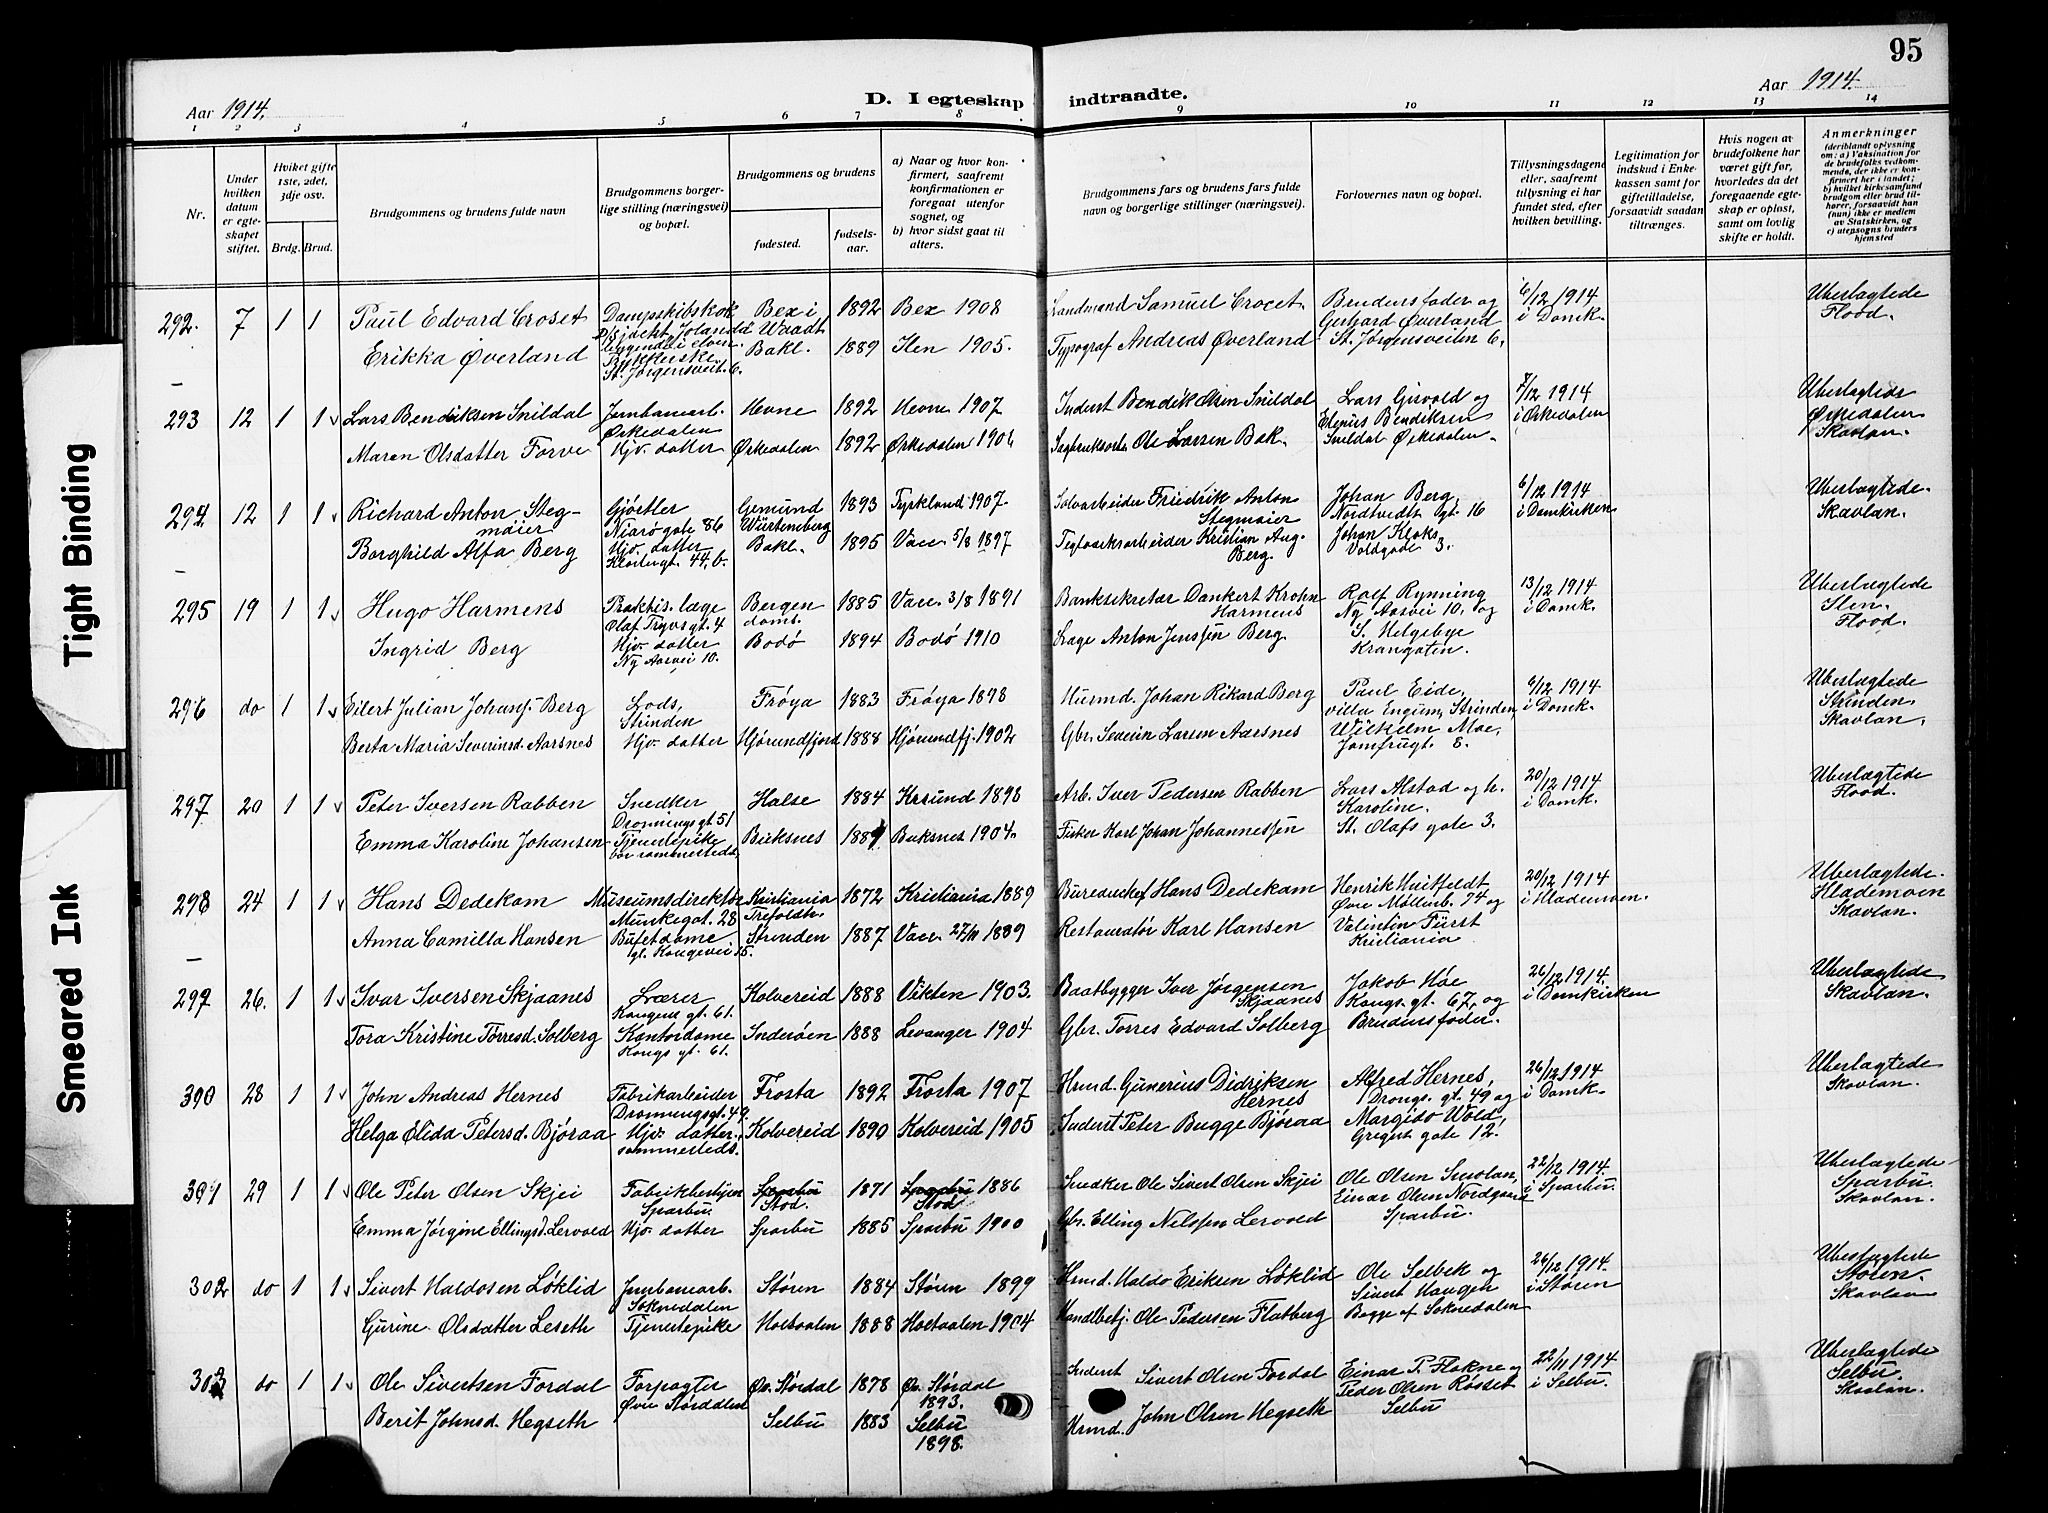 95
Aar 1914.
D. I egteskap indtraadte.
Aar 1914.
1 2 3 4 5 6 7 8 9 10 11 12 13 14
Nr.
Under hvilken datum er egteskapet stiftet.
Hviket gifte 1ste, 2det, 3dje osv.
Brdg. Brud.
Brudgommens og brudens fulde navn
Brudgommens borgerlige stilling (næringsvei) og bopæl.
Brudgommens og brudens
fødested.
fødselsaar.
a) Naar og hvor konfirmert, saafremt konfirmationen er foregaat utenfor sognet, og
b) hvor sidst gaat til alters.
Brudgommens fars og brudens fars fulde navn og borgerlige stillinger (næringsvei).
Forlovernes navn og bopæl.
Tillysningsdagene eller, saafremt tillysning ei har fundet sted, efter hvilken bevilling.
Legitimation for indskud i Enkekassen samt for giftetilladelse, forsaavidt saadan tiltrænges.
Hvis nogen av brudefolkene har været gift før, hvorledes da det foregaaende egteskap er opløst, samt om lovlig skifte er holdt.
Anmerkninger
(deriblandt oplysning om: a) Vaksination for de brudefolks vedkommende, der ikke er konfirmert her i landet; b) hvilket kirkesamfund brudgom eller brud tilhører, forsaavidt han (hun) ikke er medlem av Statskirken, og c) utensogns bruders hjemsted
292. 7 1 1 Paul Edvard Croset Dampskibskok Bex i Waadt 1892 Bex 1908 Landmand Samuel Crocet. Brudens fader og Gerhard Øverland St. Jørgensveiten 6. 6/12 1914 i Domk. Uberlagtede Flood.
Erikka Øverland St. Jørgensveit. 6. Bakl. 1889 Ilen 1905. Typograf Andreas Øverland
293 12 1 1 Lars Bendiksen Snildal Jernbanearb. Ørkedalen Hevne 1892 Hevne 1907 Inderst Bendik Olsen Snildal Lars Grivold og Elenius Bendiksen Snildal Ørkedalen. i Ørkedalen Uberlagtede Ørkedalen Skavlan.
Maren Olsdatter Forve Hjv. datter Ørkedalen 1892 Ørkedalen 1906 Ole Larsen Bak.
294 12 1 1 Richard Anton Stegmaier Gjørtler Gemünd Würtemberg 1893 Tyrkland 1907. Sølvarbeider Friedrik Anton Stegmaier Johan Berg, Nordtvedts gt. 16 Johan Kloks Voldgade 3. 6/12 1914 i Domkirken Uberlagtede Skavlan.
Borghild Alfa Berg Hjv. datter Klostergt. 44, b. Bakl. 1895 Vacc. 5/8 1897 Kristian Aug. Berg.
295 19 1 1 Hugo Harmens Praktis. læge Olaf Trygvs gt. 4 Bergen doms. 1885 Vacc. 3/8 1891 Banksekretær Dankert Krohn Harmens Rolf Rynning Ny Aasvei 10. og S. Helgebye Krangaten. 13/12 1914 i Domk. Uberlagtede Ilen. Flood.
Ingrid Berg Hjv. datter Ny Aasvei 10. Bodø 1894 Bodø 1910 Læge Anton Jenssen Berg.
296 do 1 1 Eilert Julian Johansf. Berg Lods, Strinden Frøya 1883 Frøya 1898 Husmd. Johan Rikard Berg Paul Eide, villa Engum, Strinden, Wilhelm Moe, Jomfrugt. 8. 6/12 1914 i Domk. Uberlagtede Strinden. Skavlan.
Berta Maria Severinsd. Aarsnes Hjv. datter Hjørundfjord 1888 Hjørundfj. 1902 Gbr. Severin Larsen Aarsnes
297 20 1 1 Peter Iversen Rabben Snedker Dronnings gt. 51 Halse 1884 Krsund 1898 Arb. Iver Pedersen Rabben Lars Alstad og h. Karoline. St. Olafs gate 3. 20/12 1914 i Domk. Uberlagtede Flood.
Emma Karoline Johansen Tjenestepike bor sammesteds. Buksnes Buksnes 1904. Fisker Karl Johan Johannessen
298 24 1 1 Hans Dedekam Museumsdirektør Munkegat. 28 Kristiania Trefoldh. 1872 Kristiania 1889 Bureauchef Hans Dedekam Henrik Huitfeldt Øvre Møllenb. 74 og Valentin Fürst Kristiania 20/12 1914 i Hlademoen. Uberlagtede. Hlademoen Skavlan.
Anna Camilla Hansen Bufetdame gt. Kongevei 15. Strinden 1887 Vacc. 27/11 1889 Restauratør Karl Hansen
299 26. 1 1 Ivar Iversen Skjaanes Lærer Kongens gt. 61. Kolvereid 1888 Vikten 1903. Baatbygger Iver Jørgensen Skjaanes Jakob Høe Kongs. gt. 67, og Brudens fader. 26/12 1914. i Domkirken Uberlagtede Skavlan.
Tora Kristine Torresd. Solberg Kontordame Kongs gt. 61. Inderøen 1888 Levanger 1904 Gbr. Torres Edvard Solberg
300 28 1 1 John Andreas Hernes Fabrikarbeider Dronningsgt. 49. Frosta 1892 Frosta 1907 Hrmd. Gunerius Didriksen Hernes Alfred Hernes, Drongs. gt. 49 og Margido Wold, Gregers gate 12. 26/12 1914 i Domk. Uberlagtede Skavlan.
Helga Elida Petersd. Bjøraa Hjv. datter. sammesteds. Kolvereid 1890 Kolvereid 1905 Inderst Peter Bugge Bjøraa
301 29 1 1 Ole Peter Olsen Skjei Fabrikbestyrer Sparbu. Sparbu Stod. 1871 Sparbu Stod 1886 Snedker Ole Sivert Olsen Skjei Ole Olsen Smolan, Einar Olsen Nordgaard Sparbu. 22/12 1914. i Sparbu. Uberlagtede Sparbu. Skavlan.
Emma Jørgine Ellingsd. Lervold Hjv. datter Sparbu 1885 Sparbu 1900 Gbr. Elling Nilssen Lervold
302 do 1 1 Sivert Haldosen Løklid Jernbanearb. Soknedalen Støren 1884 Støren 1899 Hrmd. Haldo Eriksen Løklid Ole Selbek og Sivert Haugen Begge af Soknedalen 26/12 1914. i Støren Uberlagtede Støren. Skavlan
Gurine Olsdatter Leseth Tjenestepike Holtaalen 1888 Holtaalen 1904 Handlbetj. Ole Pedersen Flatberg
303 do 1 1 Ole Sivertsen Fordal Forpagter Øvre Størdalen Øv. Størdal 1878 Øv. Størdal 1893. Inderst Sivert Olsen Fordal Einar P. Flakne og Peder Olsen Røsset Selbu 22/11 1914 i Selbu. Uberlagtede Selbu. Skavlan.
Berit Johnsd. Hegseth Selbu 1883 Selbu 1898. Hrmd. John Olsen Hegseth
Tight Binding
Smeared Ink